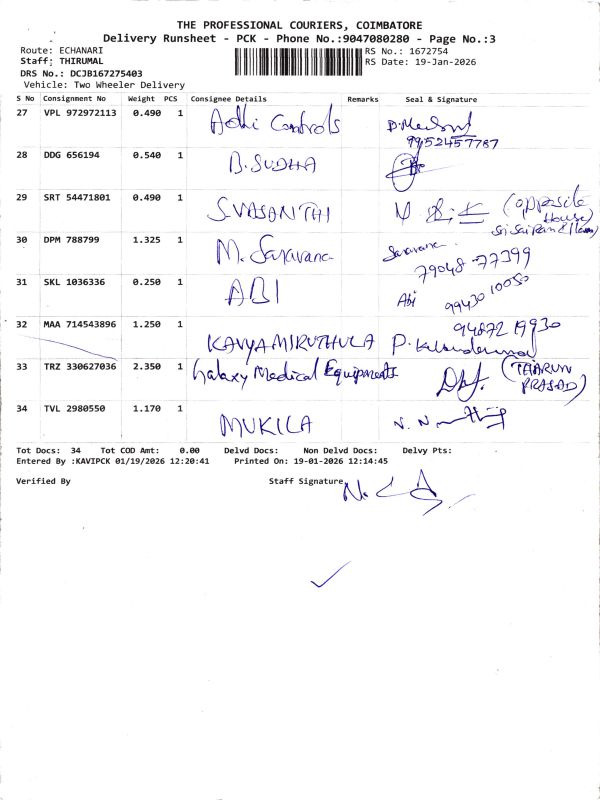 THE PROFESSIONAL COURIERS, COIMBATORE
Delivery Runsheet - PCK - Phone No.:9047080280 - Page No.:3
Route: ECHANARI RS No.: 1672754
Staff: THIRUMAL RS Date: 19-Jan-2026
DRS No.: DCJB167275403
Vehicle: Two Wheeler Delivery
S No Consignment No Weight PCS Consignee Details Remarks Seal & Signature
27 VPL 972972113 0.490 1 Adhi Controls
9952457787
28 DDG 656194 0.540 1 B.SUDHA
29 SRT 54471801 0.490 1 S.VASANTHI (opposite House)
30 DPM 788799 1.325 1 M. Saravana Saravana
79048 77399
31 SKL 1036336 0.250 1 ABI Abi 99430 10050
32 MAA 714543896 1.250 1 KAVYAMIRUTHULA 94872 19930
33 TRZ 330627036 2.350 1 Galaxy Medical Equipments (THARUN PRASAD)
34 TVL 2980550 1.170 1 MUKILA
Tot Docs: 34 Tot COD Amt: 0.00 Delvd Docs: Non Delvd Docs: Delvy Pts:
Entered By :KAVIPCK 01/19/2026 12:20:41 Printed On: 19-01-2026 12:14:45
Verified By Staff Signature